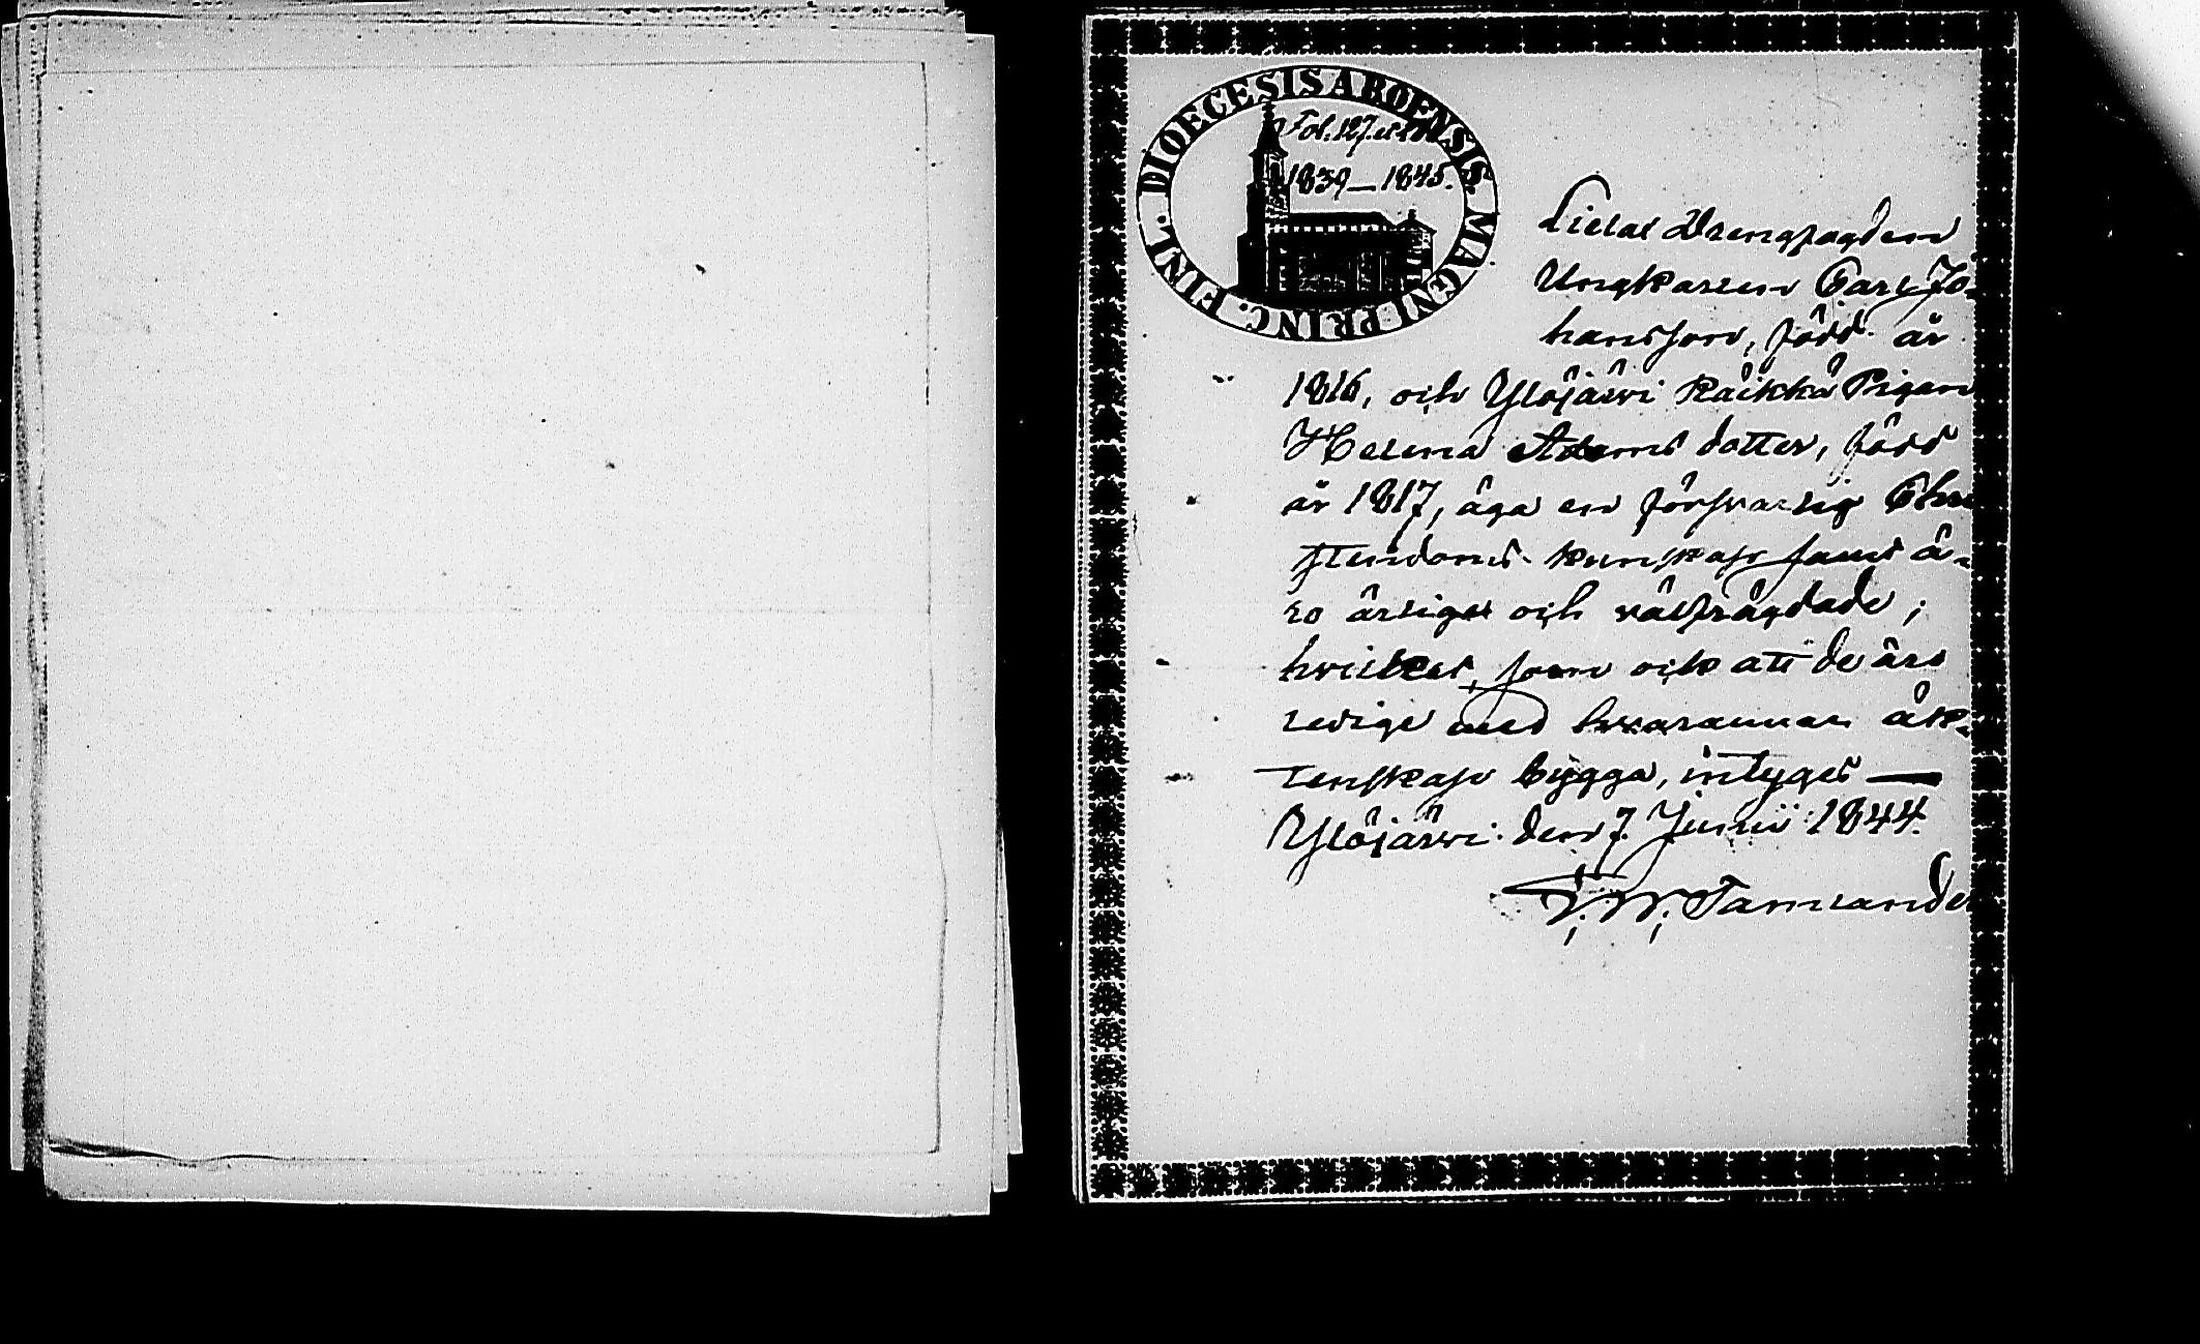 DIOECESIS ABOENSIS. MAGNI PRINC. FINL.
Fol. 127. et
1839–1845.
Drengpogden
Ungkarlen Carl Jo-
hansson, född år
1816, och Ylöjärvi Räikkä Pigan
Helena Adams dotter, född
år 1817, äga en försvarlig Chri
stendoms kunskap samt ä-
ro ärlige och välfrägdade;
hvilket, som ock att de äro
ledige med hvarannan äk-
tenskap bygga, intygas —
Ylöjärvi den 7 Junii 1844.
F. W. Tamlander